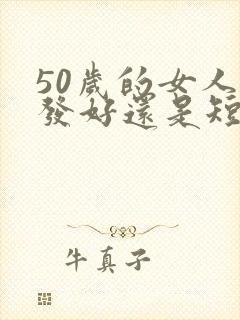 50歲的女人
發好還是短
牛真子